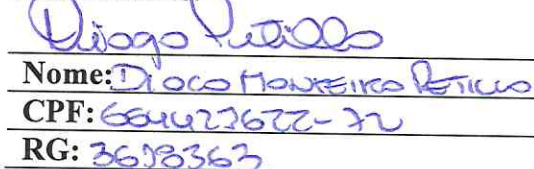 Diogo Petillo
Nome: DIOGO MONTEIRO PETILLO
CPF: 664423622-72
RG: 3698363